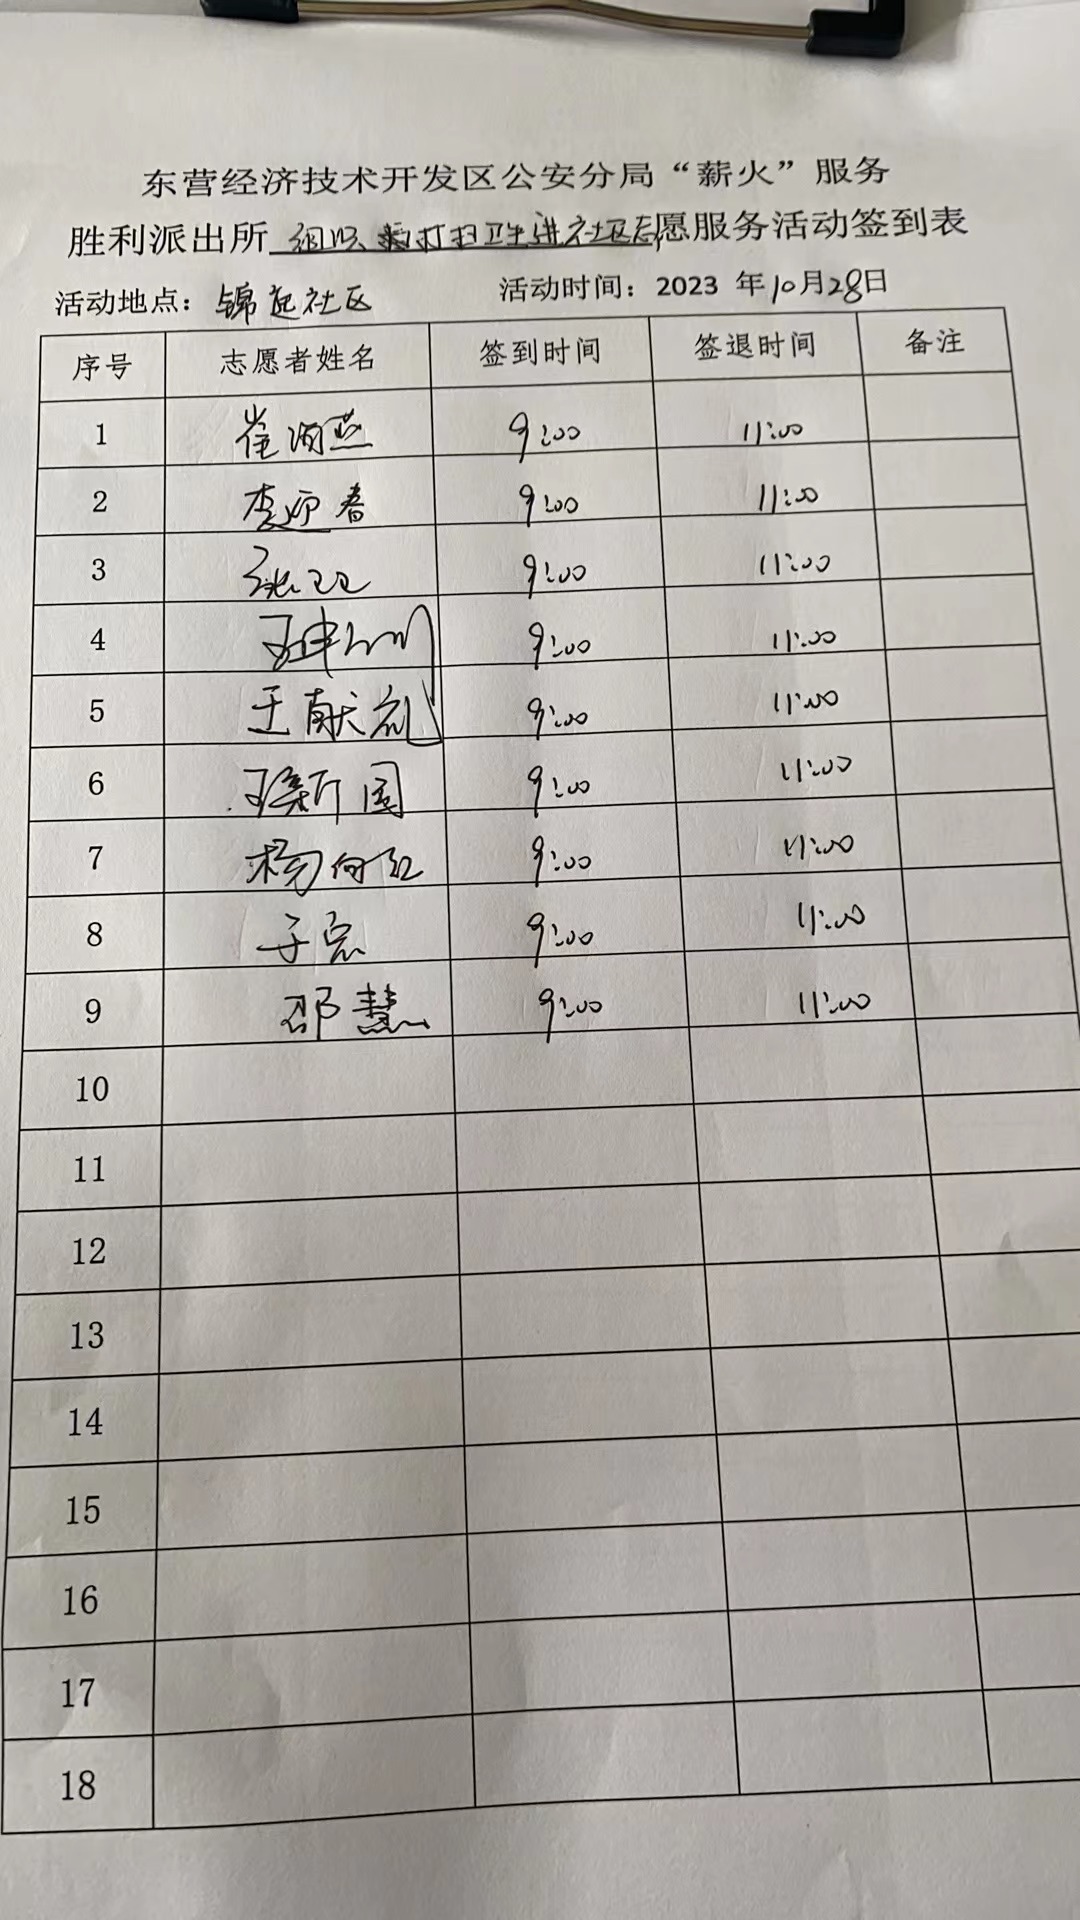 东营经济技术开发区公安分局“薪火”服务
胜利派出所 打扫卫生进社区志愿服务活动签到表
活动地点：锦苑社区 活动时间：2023 年10月28日
序号 志愿者姓名 签到时间 签退时间 备注
1 崔 燕 9:00 11:00
2 李迎春 9:00 11:00
3 9:00 11:00
4 王 9:00 11:00
5 王献礼 9:00 11:00
6 王新国 9:00 11:00
7 杨向红 9:00 11:00
8 于 9:00 11:00
9 邵慧 9:00 11:00
10
11
12
13
14
15
16
17
18